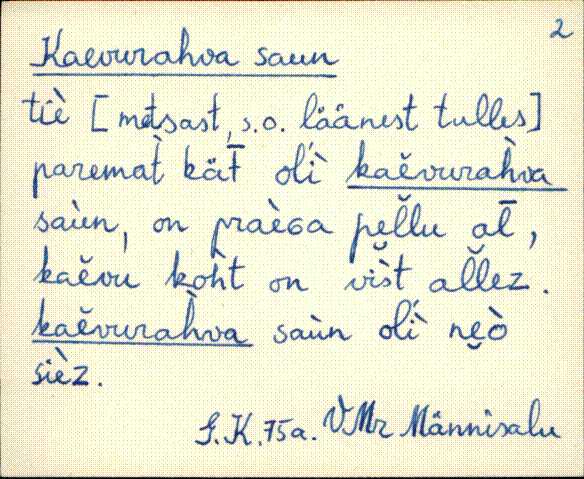 2
Kaevurahva saun
tiè [metsast, s.o. läänest tulles]
paremat̀ kät̄ olì kaĕvurah̀va
saùn, on praèGa pel̆lu al̄,
kaĕvu koh̀t on vis̆t al̆lez.
kaĕvurah̀va saùn olì neò̯
sièz.
J.K. 75a. VMr Männisalu